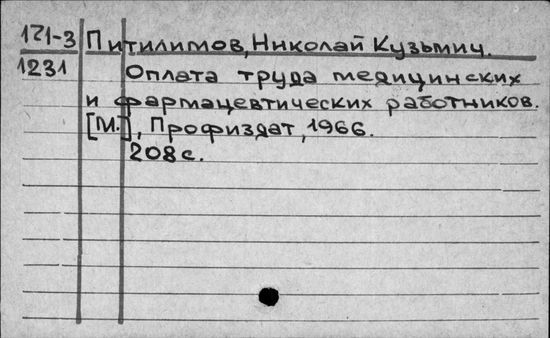 171-3
1231
Питилимов, Николай Кузьмич.
Оплата труда медицинских
и фармацевтических работников.
[М.], Профиздат, 1966.
208 с.